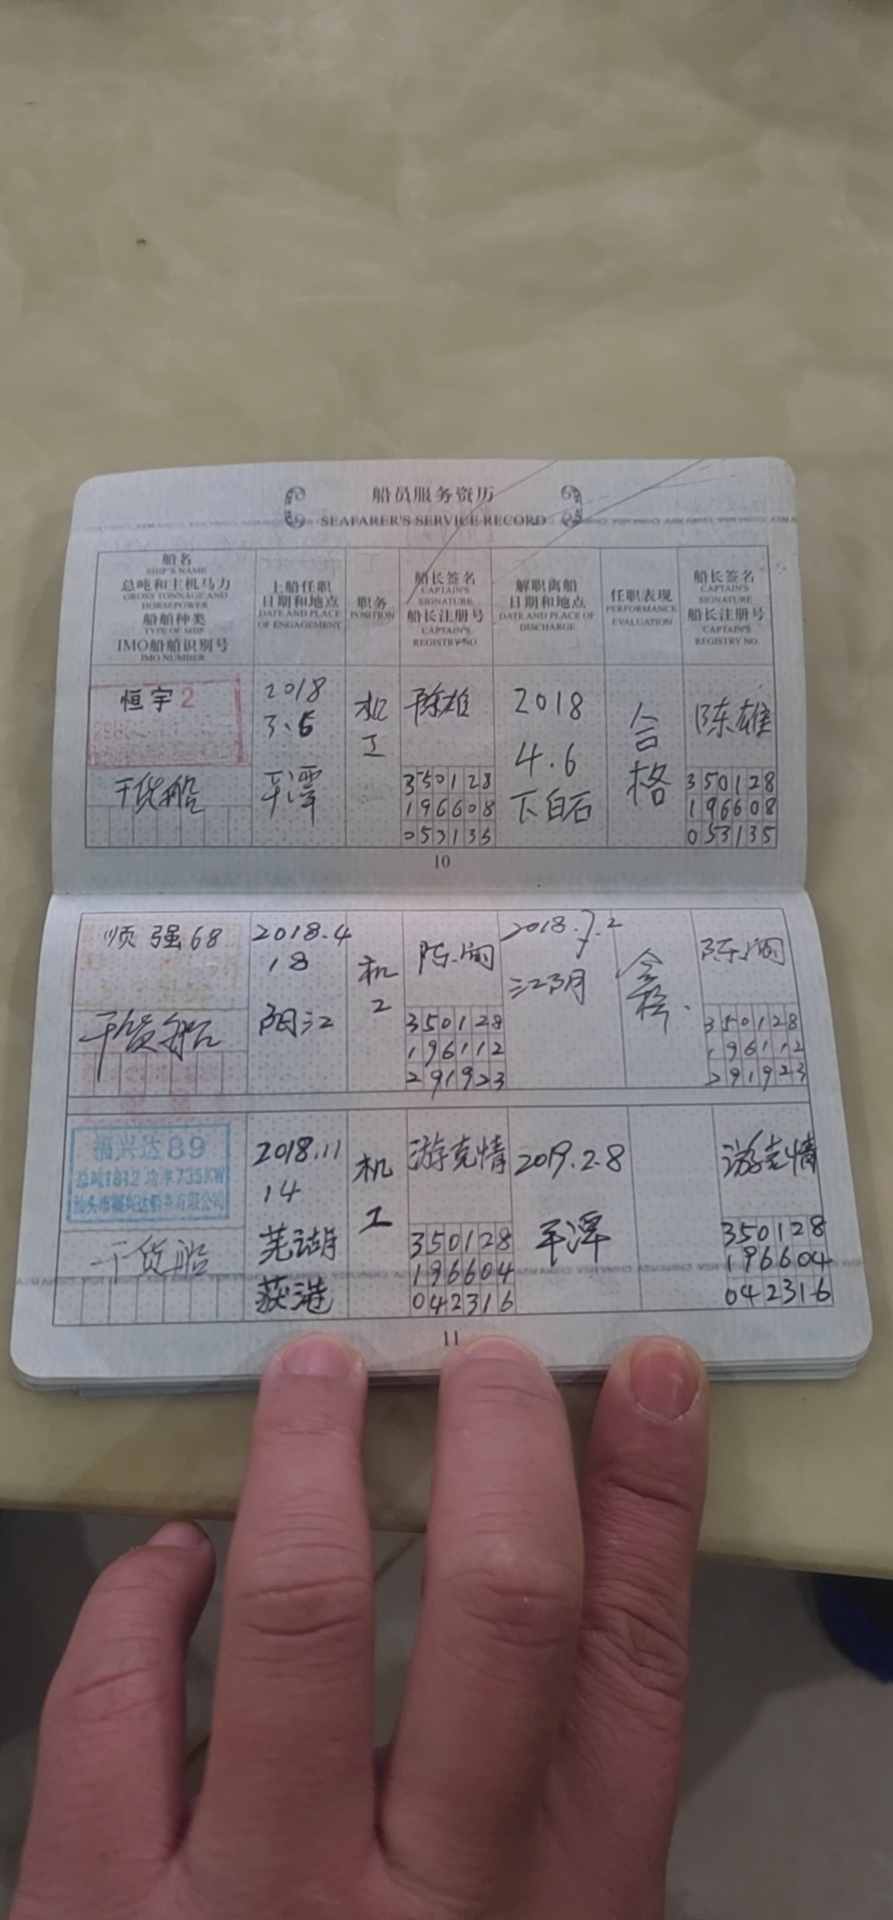 船员服务资历
SEAFARER'S SERVICE RECORD
船名
SHIP'S NAME
总吨和主机马力
GROSS TONNAGE AND
HORSEPOWER
船舶种类
TYPE OF SHIP
IMO船舶识别号
IMO NUMBER
上船任职
日期和地点
DATE AND PLACE
OF ENGAGEMENT
职务
POSITION
船长签名
CAPTAIN'S
SIGNATURE
船长注册号
CAPTAIN'S
REGISTRY NO.
解职离船
日期和地点
DATE AND PLACE OF
DISCHARGE
任职表现
PERFORMANCE
EVALUATION
船长签名
CAPTAIN'S
SIGNATURE
船长注册号
CAPTAIN'S
REGISTRY NO.
恒宇2
干货船
2018
3.6
平潭
机
工
陈雄
350128
196608
053135
2018
4.6
下白石
合
格
陈雄
350128
196608
053135
10
顺强68
干货船
2018.4
18
阳江
机
工
350128
196112
291923
2018.7.2
江阴
合
格
350128
196112
291923
福兴达89
总吨1812 功率735KW
干货船
2018.11
14
芜湖
荻港
机
工
游克情
350128
196604
042316
2019.2.8
平潭
游克情
350128
196604
042316
11